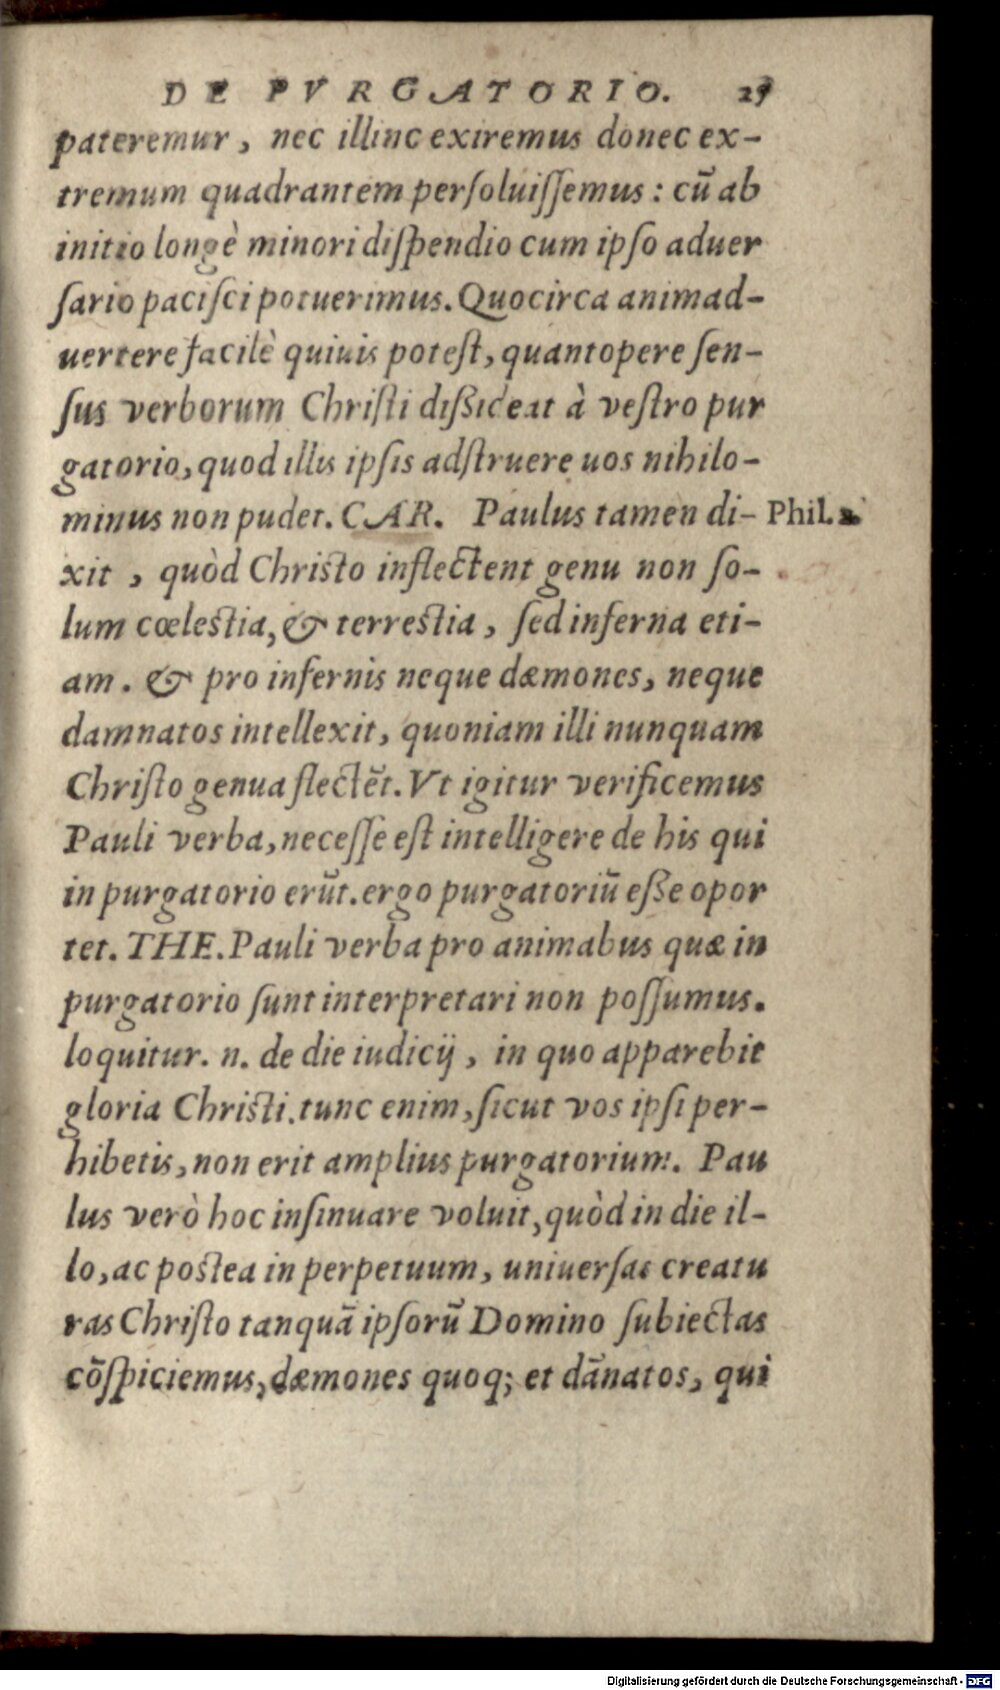 DE PVRGATORIO. 25
pateremur, nec illinc exiremus donec ex-
tremum quadrantem persoluissemus: cū ab
initio longè minori dispendio cum ipso aduer
sario pacisci potuerimus. Quocirca animad-
uertere facilè quiuis potest, quantopere sen-
sus verborum Christi dißideat à vestro pur
gatorio, quod illis ipsis adstruere uos nihilo-
minus non pudet. CAR. Paulus tamen di- Phil.
xit, quòd Christo inflectent genu non so-
lum cœlestia, & terrestia, sed inferna eti-
am. & pro infernis neque dæmones, neque
damnatos intellexit, quoniam illi nunquam
Christo genua flectēt. Vt igitur verificemus
Pauli verba, necesse est intelligere de his qui
in purgatorio erūt. ergo purgatoriū eße opor
tet. THE. Pauli verba pro animabus quæ in
purgatorio sunt interpretari non possumus.
loquitur. n. de die iudicij, in quo apparebit
gloria Christi. tunc enim, sicut vos ipsi per-
hibetis, non erit amplius purgatorium. Pau
lus verò hoc insinuare voluit, quòd in die il-
lo, ac postea in perpetuum, uniuersas creatu
ras Christo tanquā ipsorū Domino subiectas
cōspiciemus, dæmones quoq; et dānatos, qui
Digitalisierung gefördert durch die Deutsche Forschungsgemeinschaft - DFG